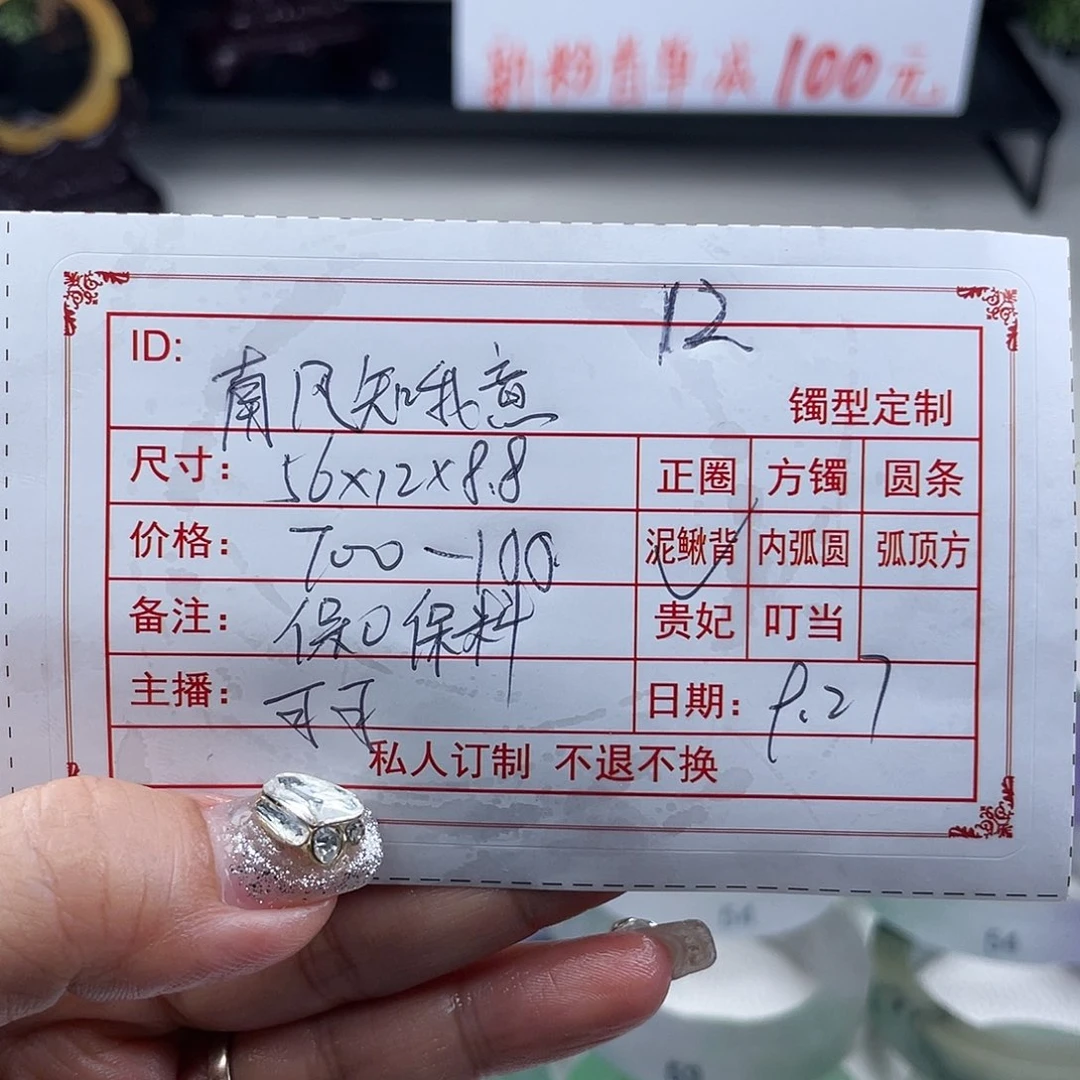 新粉首单减100元
12
ID: 南风知我意
镯型定制
尺寸: 56×12×8.8 正圈 方镯 圆条
价格: 700-100 泥鳅背 内弧圆 弧顶方
备注: 保口保料 贵妃 叮当
主播: 可可 日期: 9.27
私人订制 不退不换
54
54